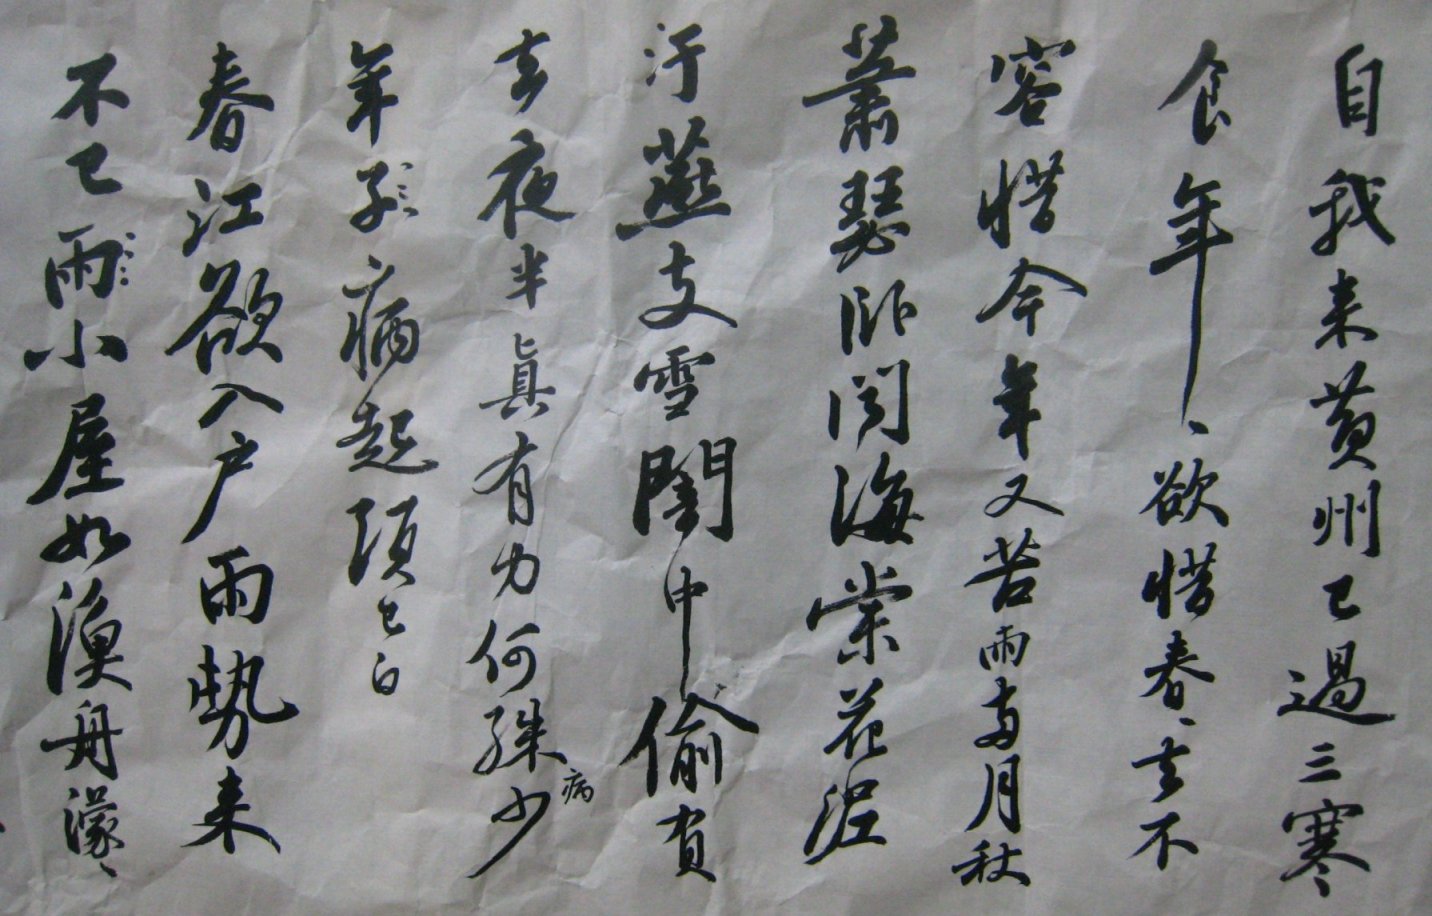 自我来黄州已過三寒
食年、欲惜春、去不
容惜今年又苦雨兩月秋
蕭瑟卧聞海棠花泥
汙燕支雪闇中偷負
去夜半真有力何殊病少
年子病起須已白
春江欲入户雨勢来
不已雨小屋如漁舟濛、